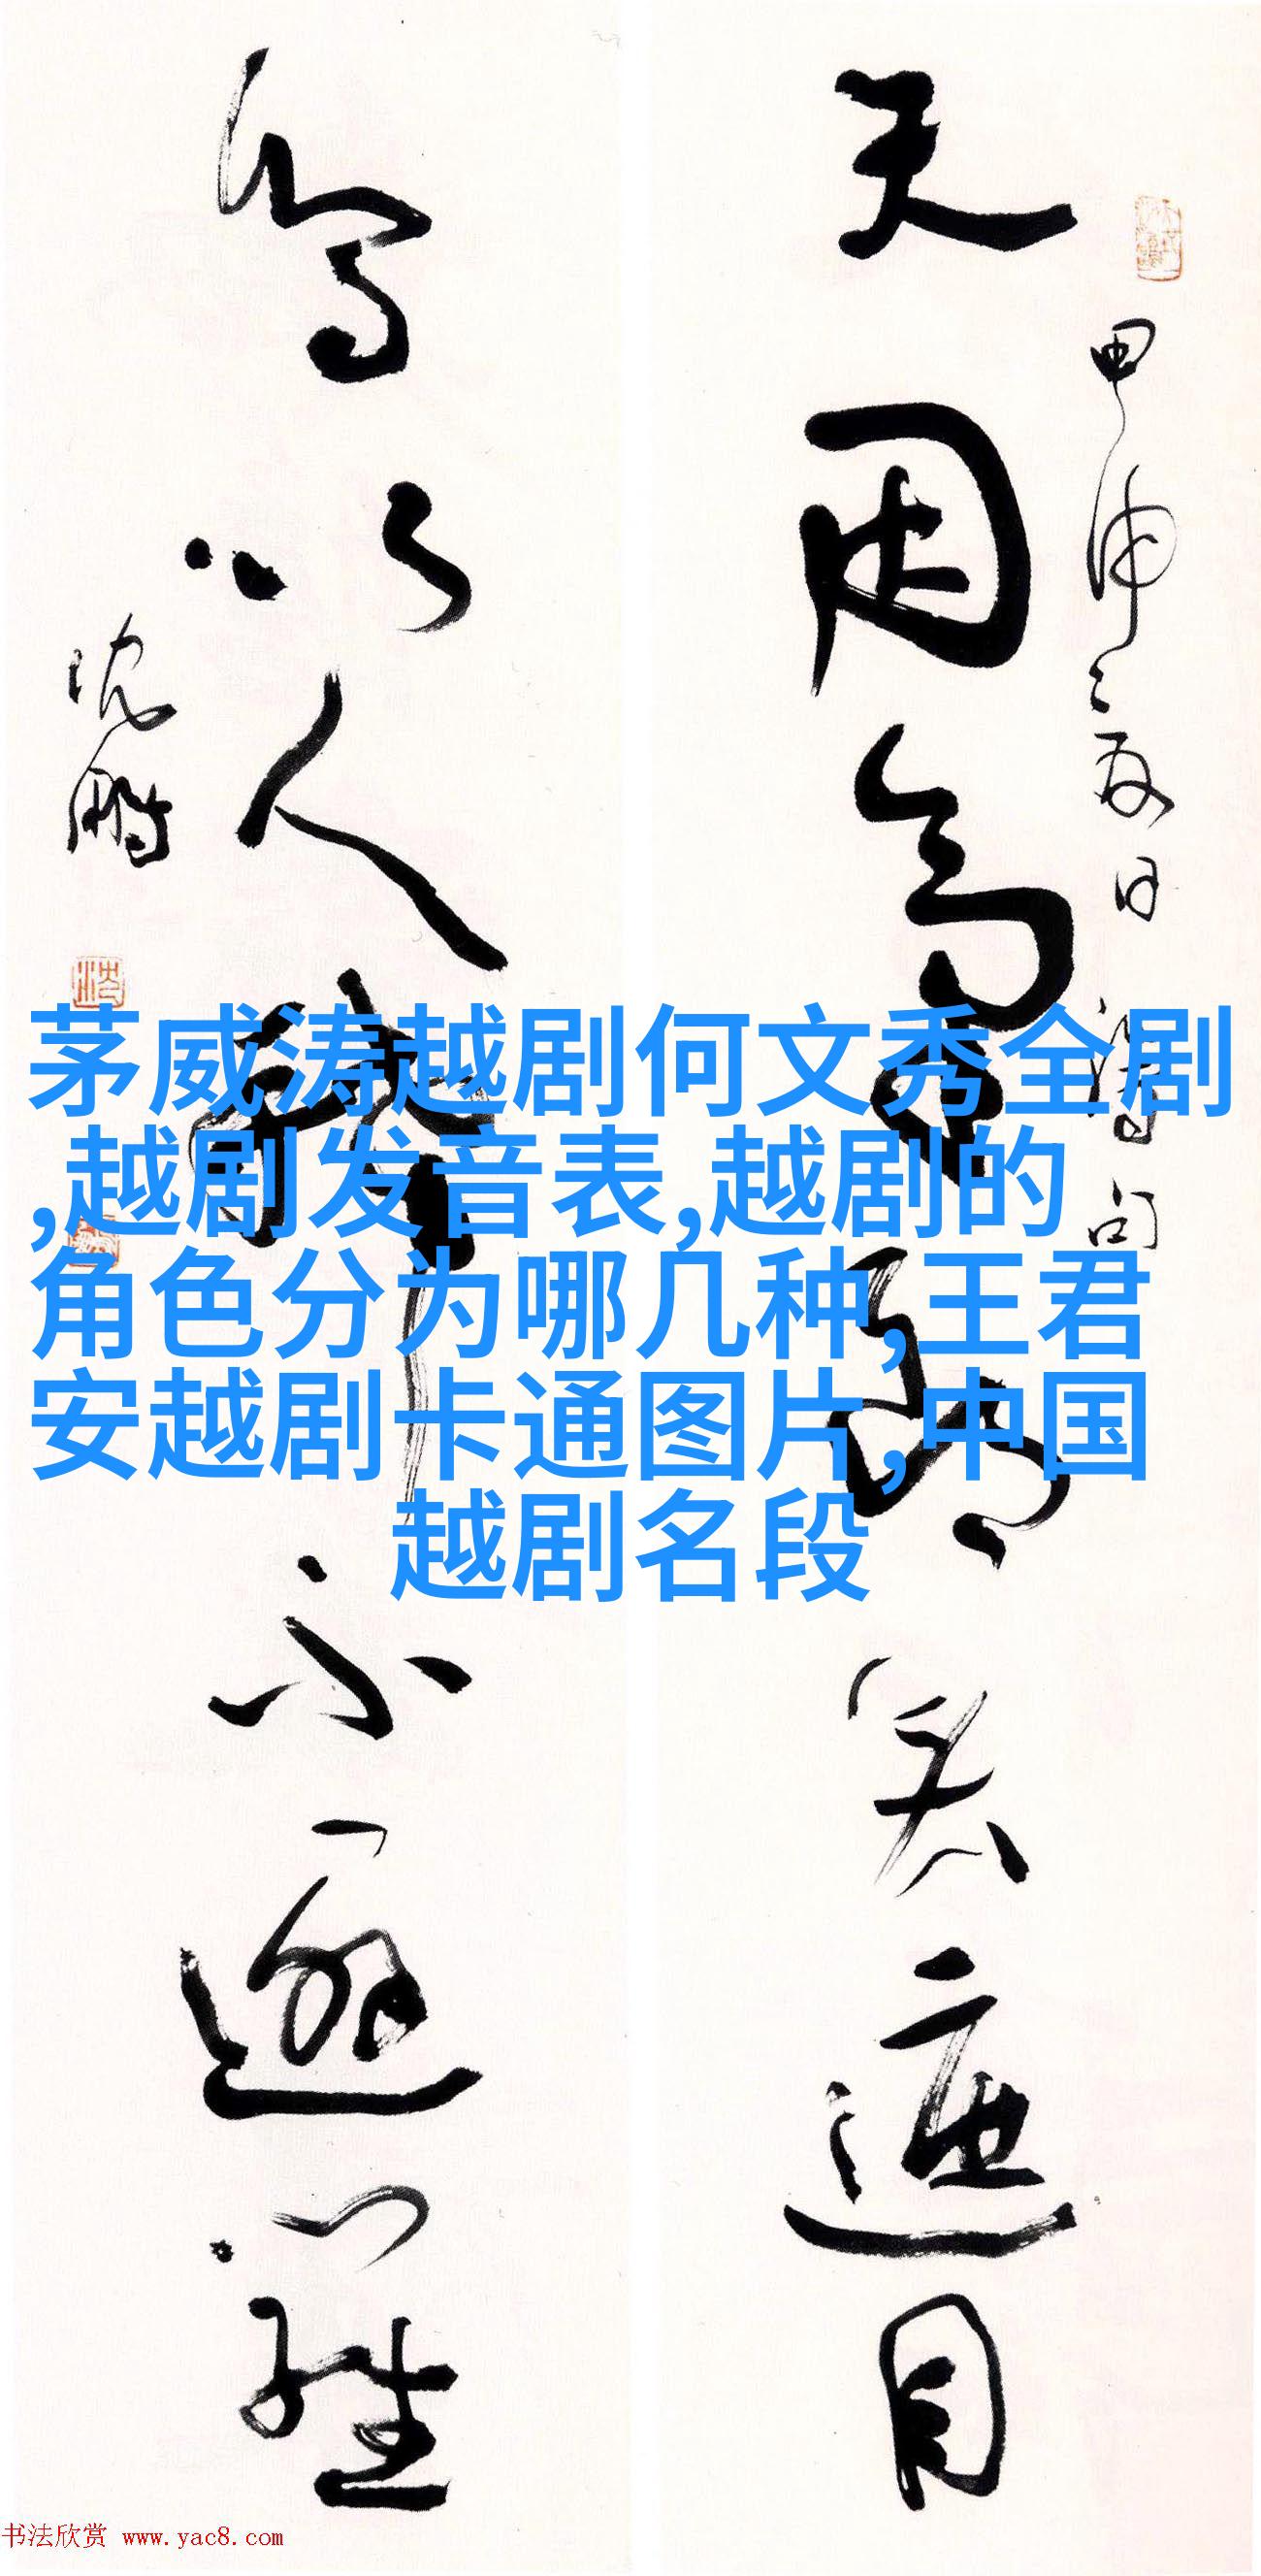 茅威涛越剧何文秀全剧
,越剧发音表,越剧的
角色分为哪几种,王君
安越剧卡通图片,中国
越剧名段
甲申
天因遮目
以人不避
沈鹏
书法欣赏 www.yac8.com